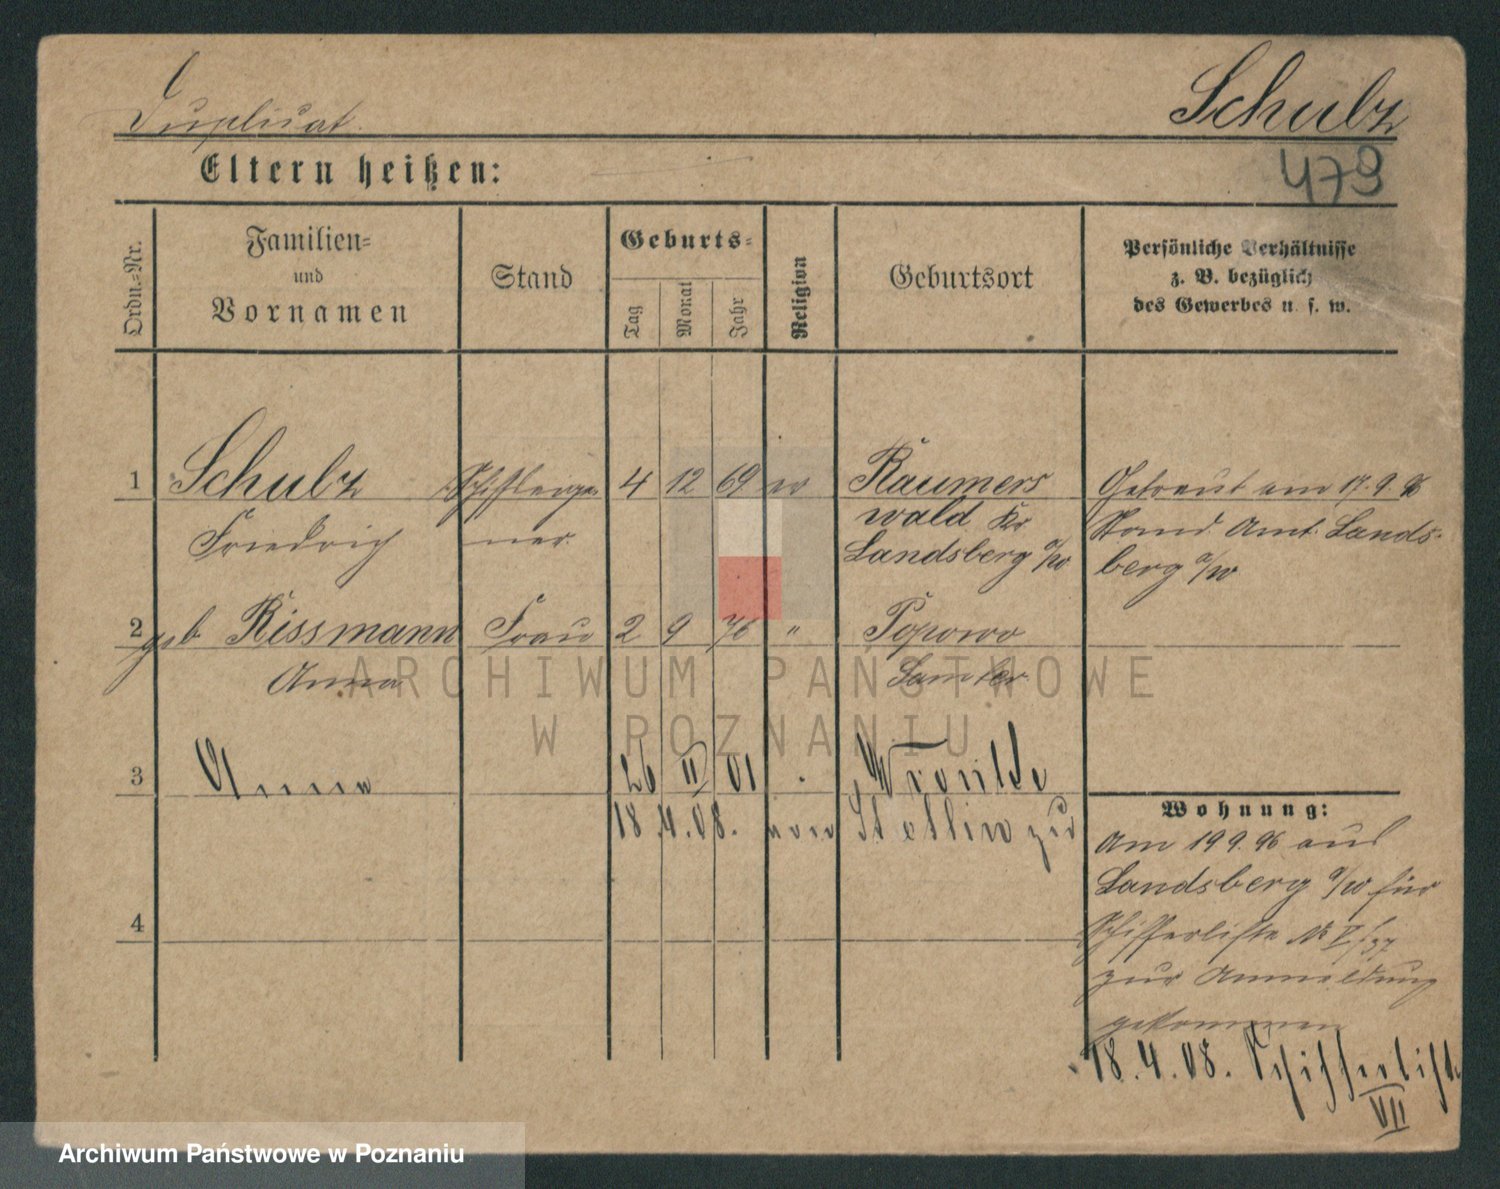 Duplicat.
Schulz
Eltern heißen:
479
Ordn.-Nr.
Familien-
und
Vornamen
Stand
Geburts-
Tag
Monat
Jahr
Religion
Geburtsort
Persönliche Verhältnisse
z. B. bezüglich
des Gewerbes u. s. w.
1 Schulz Schiffseige- 4 12 69 Raumers
Friedrich ner wald Kr
Landsberg a/w
Getraut am 17.9.96
Stand. Amt. Lands-
berg a/w
2 geb. Rissmann Frau 2 9 76 " Popowo
Anna Samter
3 Anna 26 II 01 Wronke
18.4.08. von Stettin zur
Wohnung:
Am 19 9. 96 aus
Landsberg a/w für
Schifferliste No V/37
zur Anmeldung
gekommen
18.4.08. Schifferliste
VII
4
ARCHIWUM PAŃSTWOWE
W POZNANIU
Archiwum Państwowe w Poznaniu